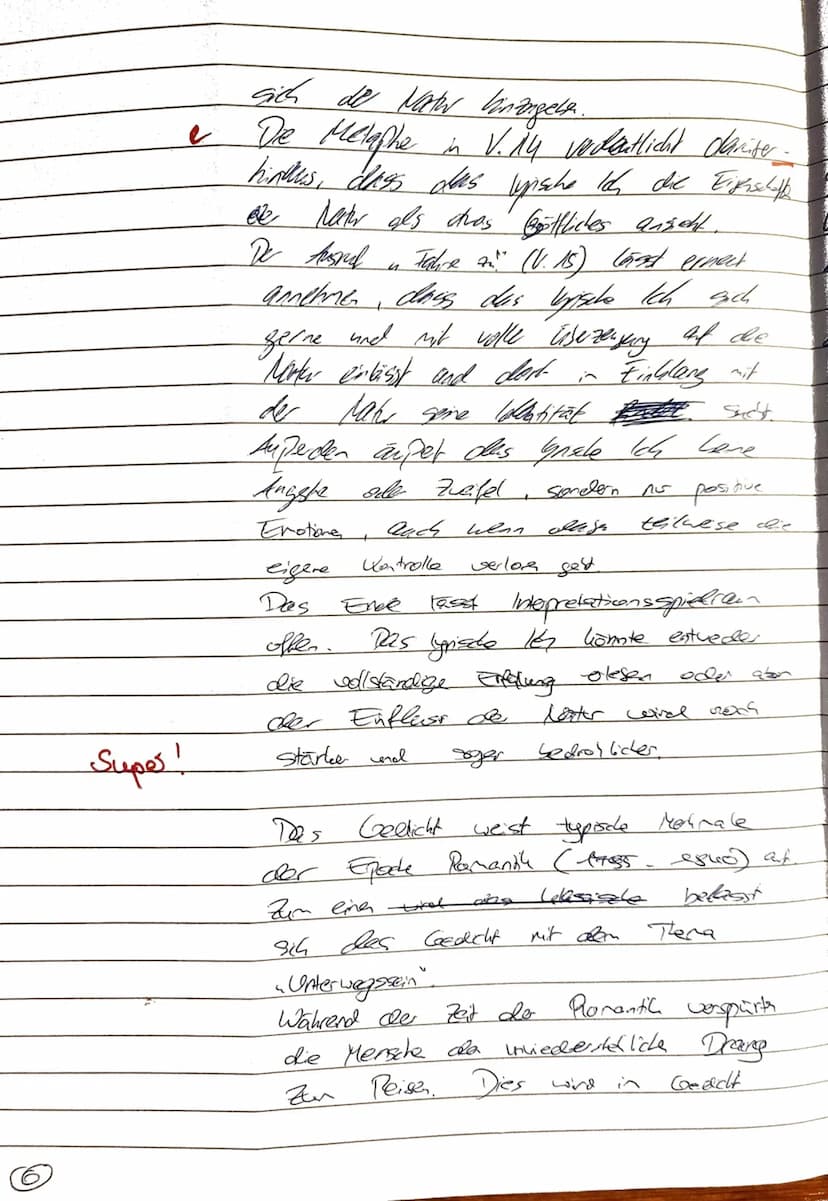 sich der Natur hinzugeben.
Die Metapher in V. 14 verdeutlicht darüber-
hinaus, dass das lyrische Ich die Eigenschaft
der Natur als etwas Göttliches ansieht.
Der Ausruf „Fahre zu!" (V. 15) lässt erneut
annehmen, dass das lyrische Ich sich
gerne und mit voller Überzeugung auf die
Natur einlässt und dort in Einklang mit
der Natur seine Identität sucht.
Außerdem äußert das lyrische Ich keine
Ängste oder Zweifel, sondern nur positive
Emotionen, auch wenn dabei teilweise die
eigene Kontrolle verloren geht.
Das Ende lässt Interpretationsspielraum
offen. Das lyrische Ich könnte entweder
die vollständige Erfüllung oder aber
der Einfluss der Natur wird noch
stärker und sogar bedrohlicher.
Super!
Das Gedicht weist typische Merkmale
der Epoche Romantik (1795 - 1840) auf.
Zum einen befasst
sich das Gedicht mit dem Thema
„Unterwegssein".
Während der Zeit der Romantik verspürte
die Menschen den unwiederstehliche Drang
zum Reisen. Dies wird in Gedicht
6